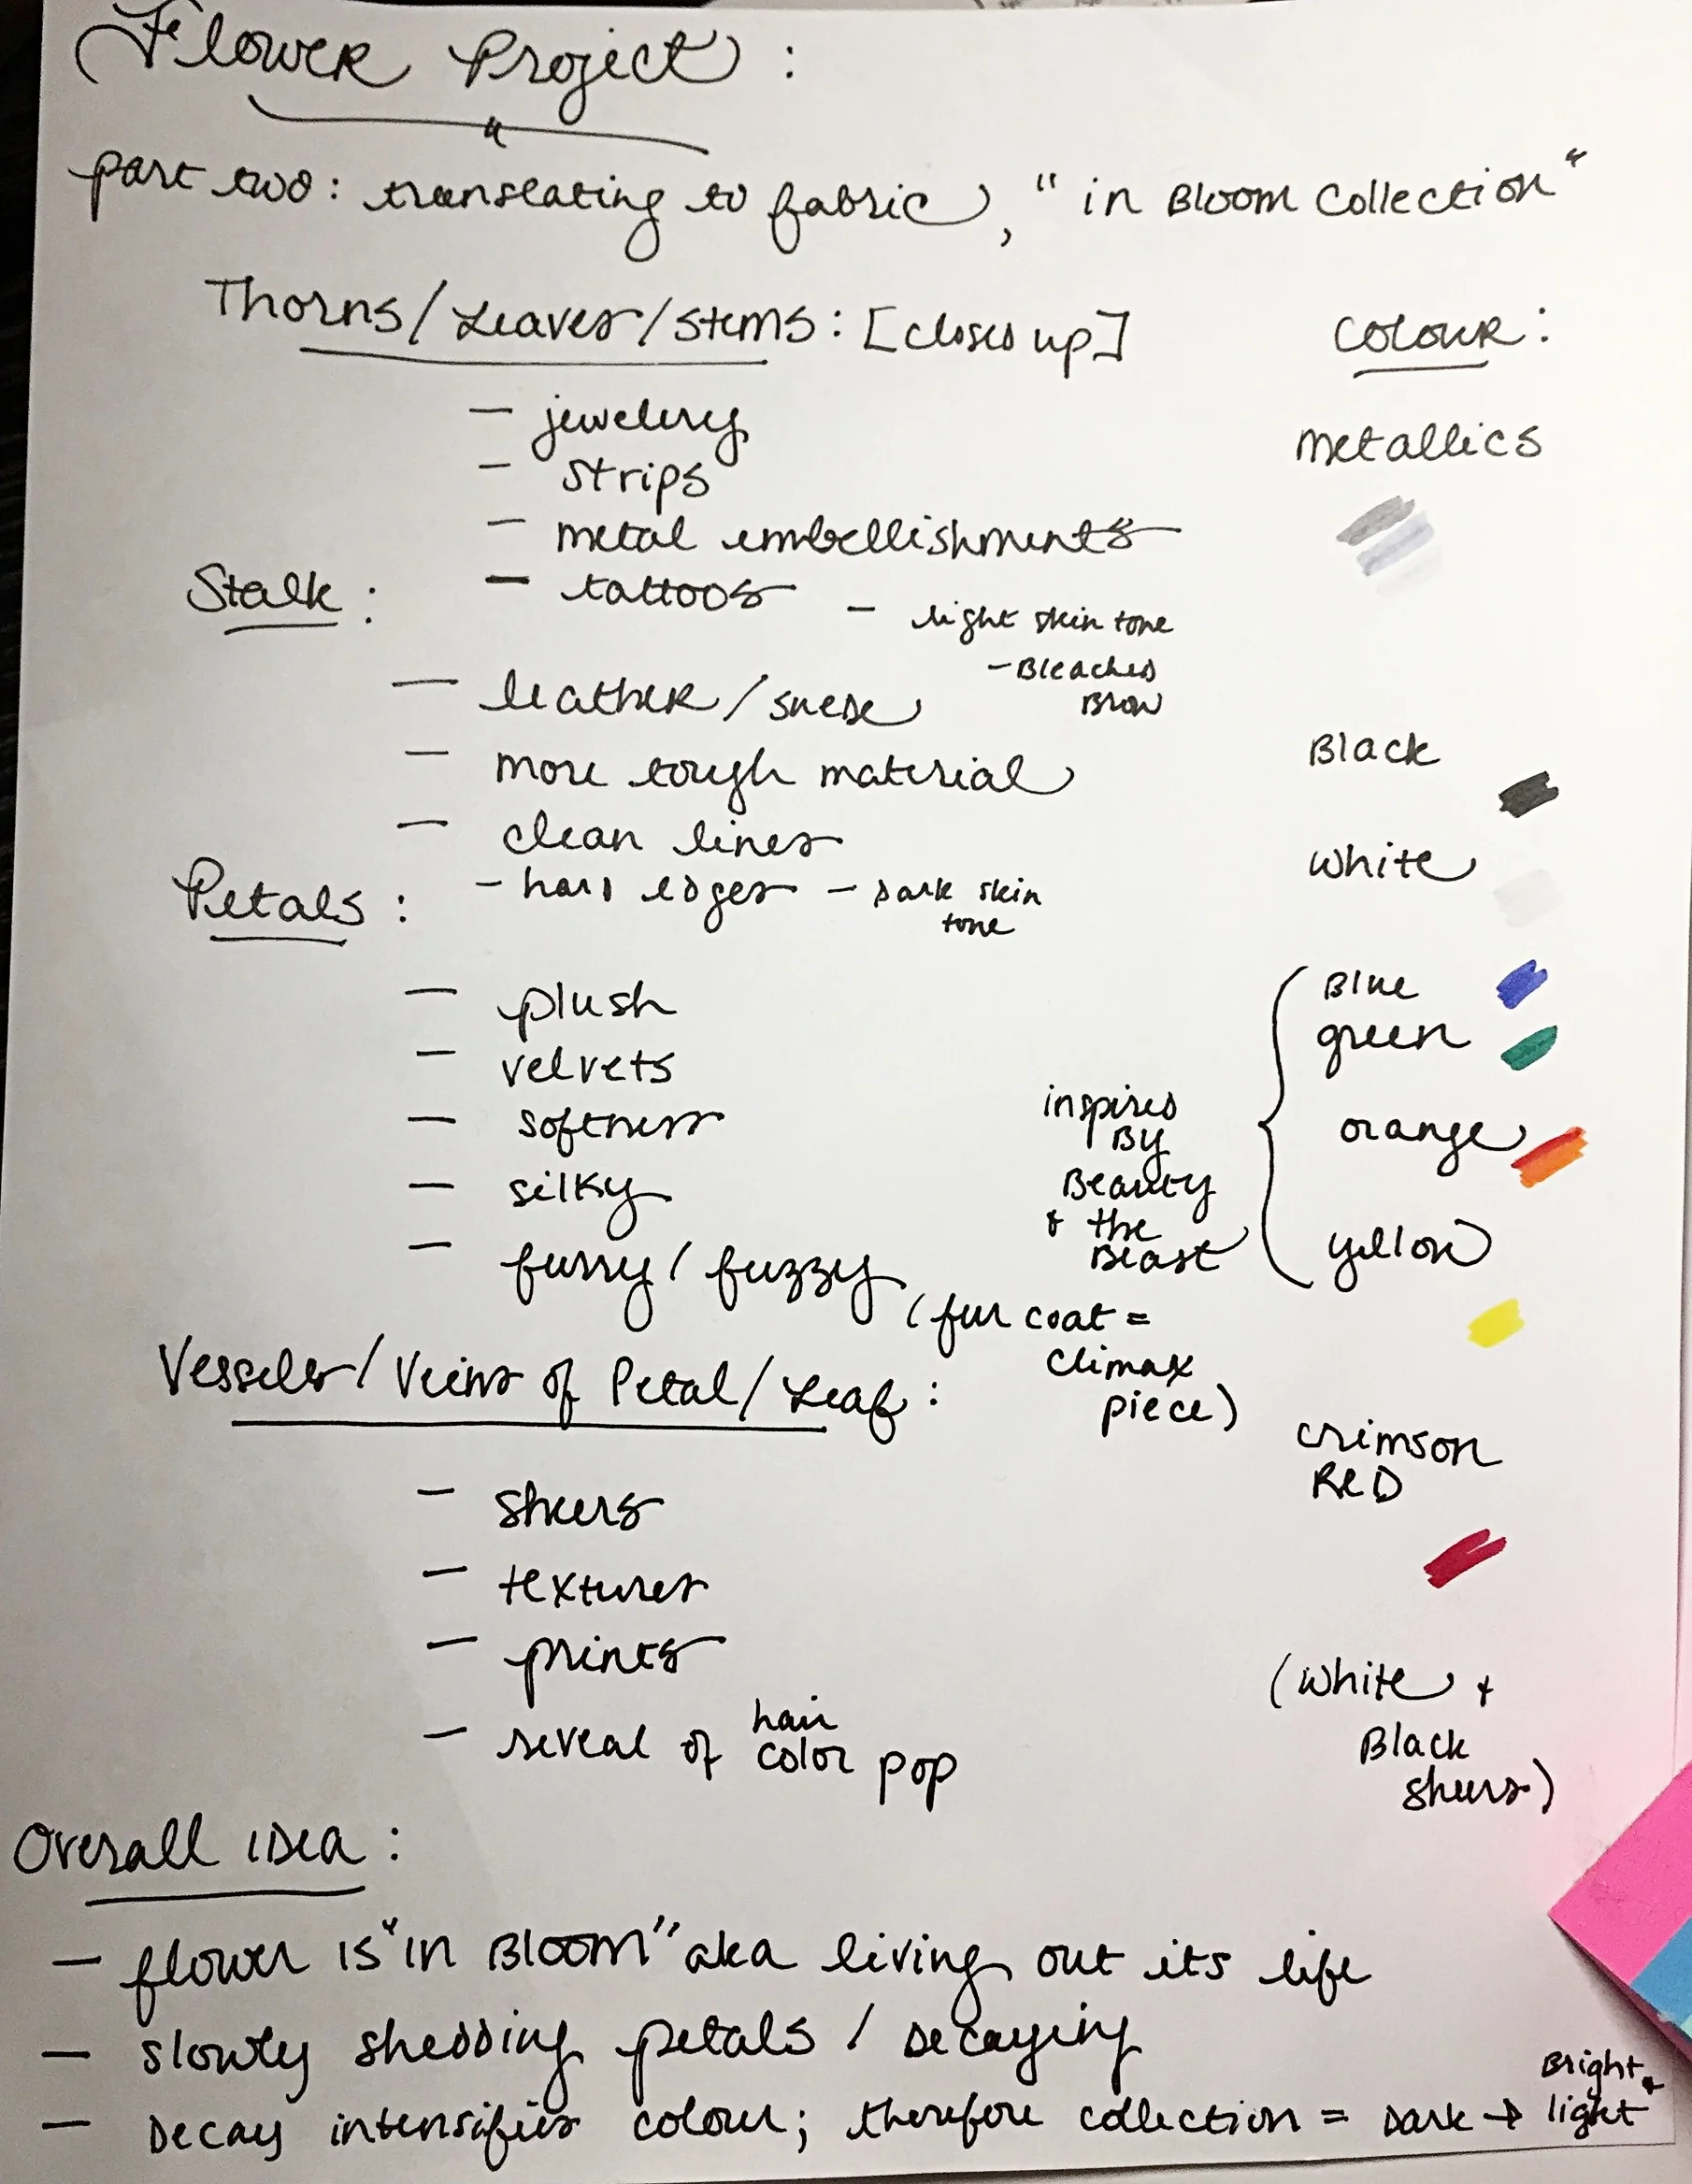 Flower Project :
part two : translating to fabric, "in Bloom Collection"
Thorns/Leaves/stems : [closed up]
colour :
— jewelery
metallics
— strips
— metal embellishments
— tattoos — light skin tone
— Bleached
Brow
Stalk :
— leather/suede
— more tough material
Black
— clean lines
white
— hard edges — Dark skin
tone
Petals :
— plush
— velvets
— softness
— silky
— furry/fuzzy
(fur coat =
climax
piece)
inspired
By
Beauty
& the
Beast
Blue
green
orange
yellow
Vessels/Veins of Petal/Leaf :
crimson
RED
— sheers
— textures
— prints
— reveal of hair
color pop
(white &
Black
sheers)
Overall IDea :
— flower is "in Bloom" aka living out its life
— slowly shedding petals / Decaying
— Decay intensifies colour; therefore collection = Dark → Bright &
light